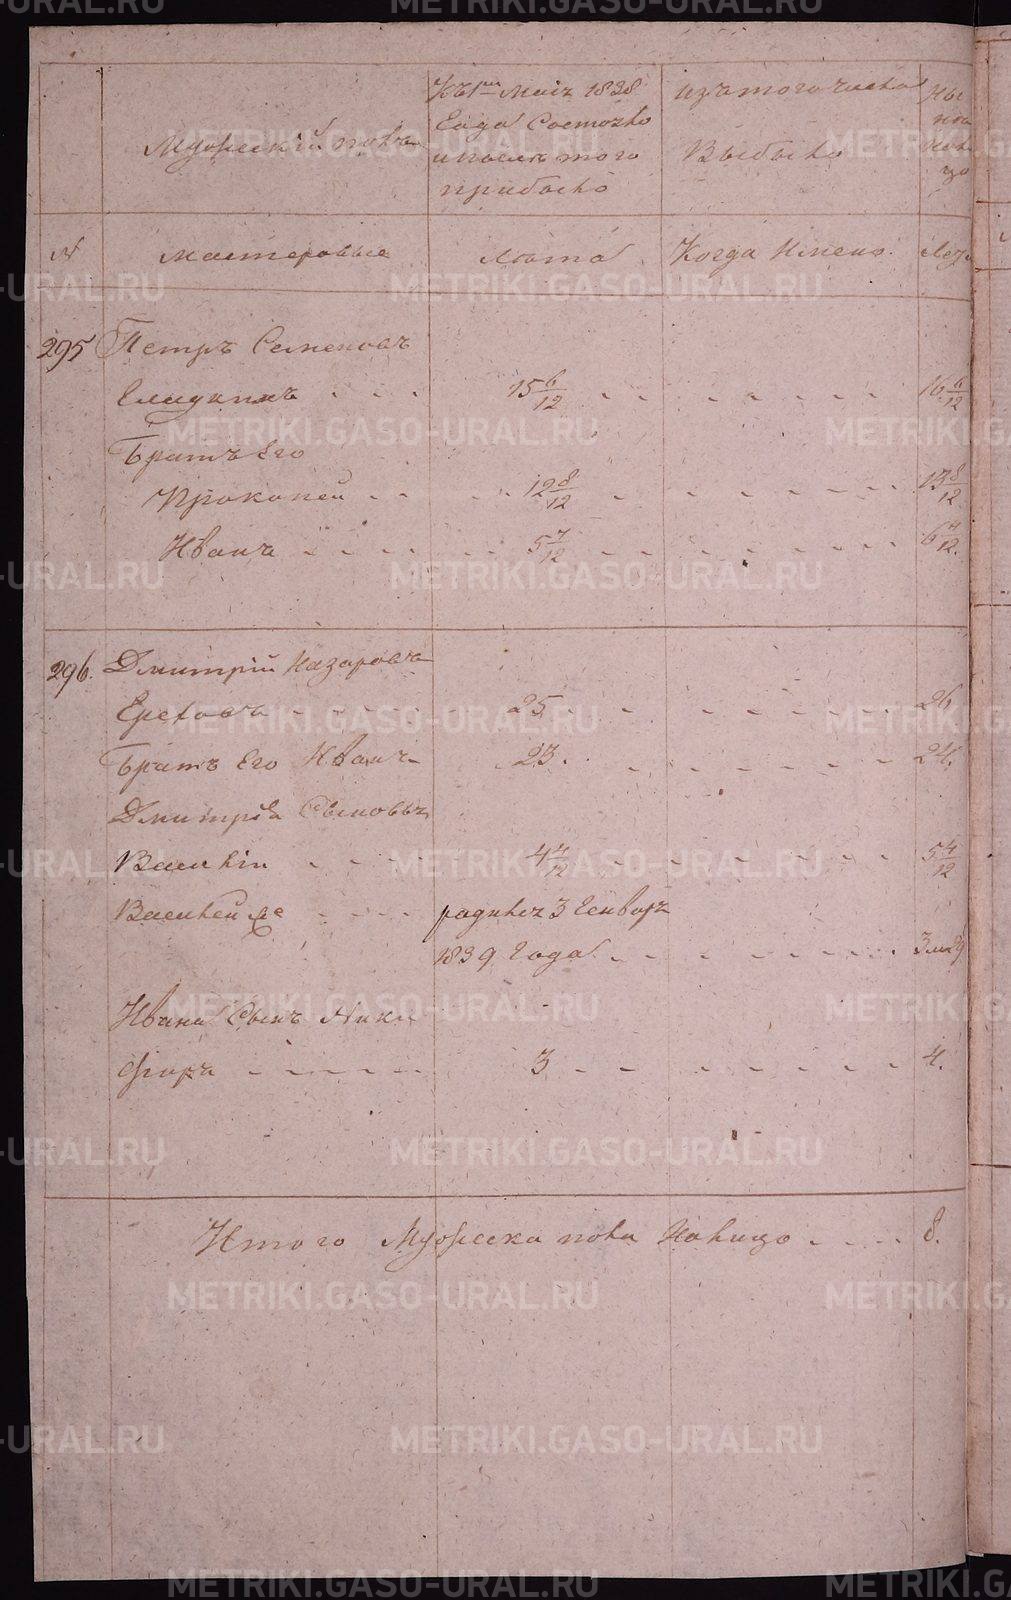 Мужескiй полъ
Къ 1му Маiя 1838
Года Состояло
и после того
прибыло
изъ того числа
Выбыло
Ны
на
ли
цо
№
Мастеровые
Лета
Когда Имено
Лета
295 Петръ Семеновъ
15 6/12 16 6/12
Братъ Его
Прокопей 12 8/12 13 8/12
Иванъ 5 7/12 6 7/12
296. Дмитрiй Назаровъ
25 26
Братъ Его Иванъ 23. 24.
Дмитрiя Сыновья
Василiй 4 4/12 5 4/12
Василей 2е родился 3 Генваря
1839 Года 3 м 29
Ивана Сынъ Ники
форъ 3 4.
Итого Мужеска пола На лицо 8.
METRIKI.GASO-URAL.RU